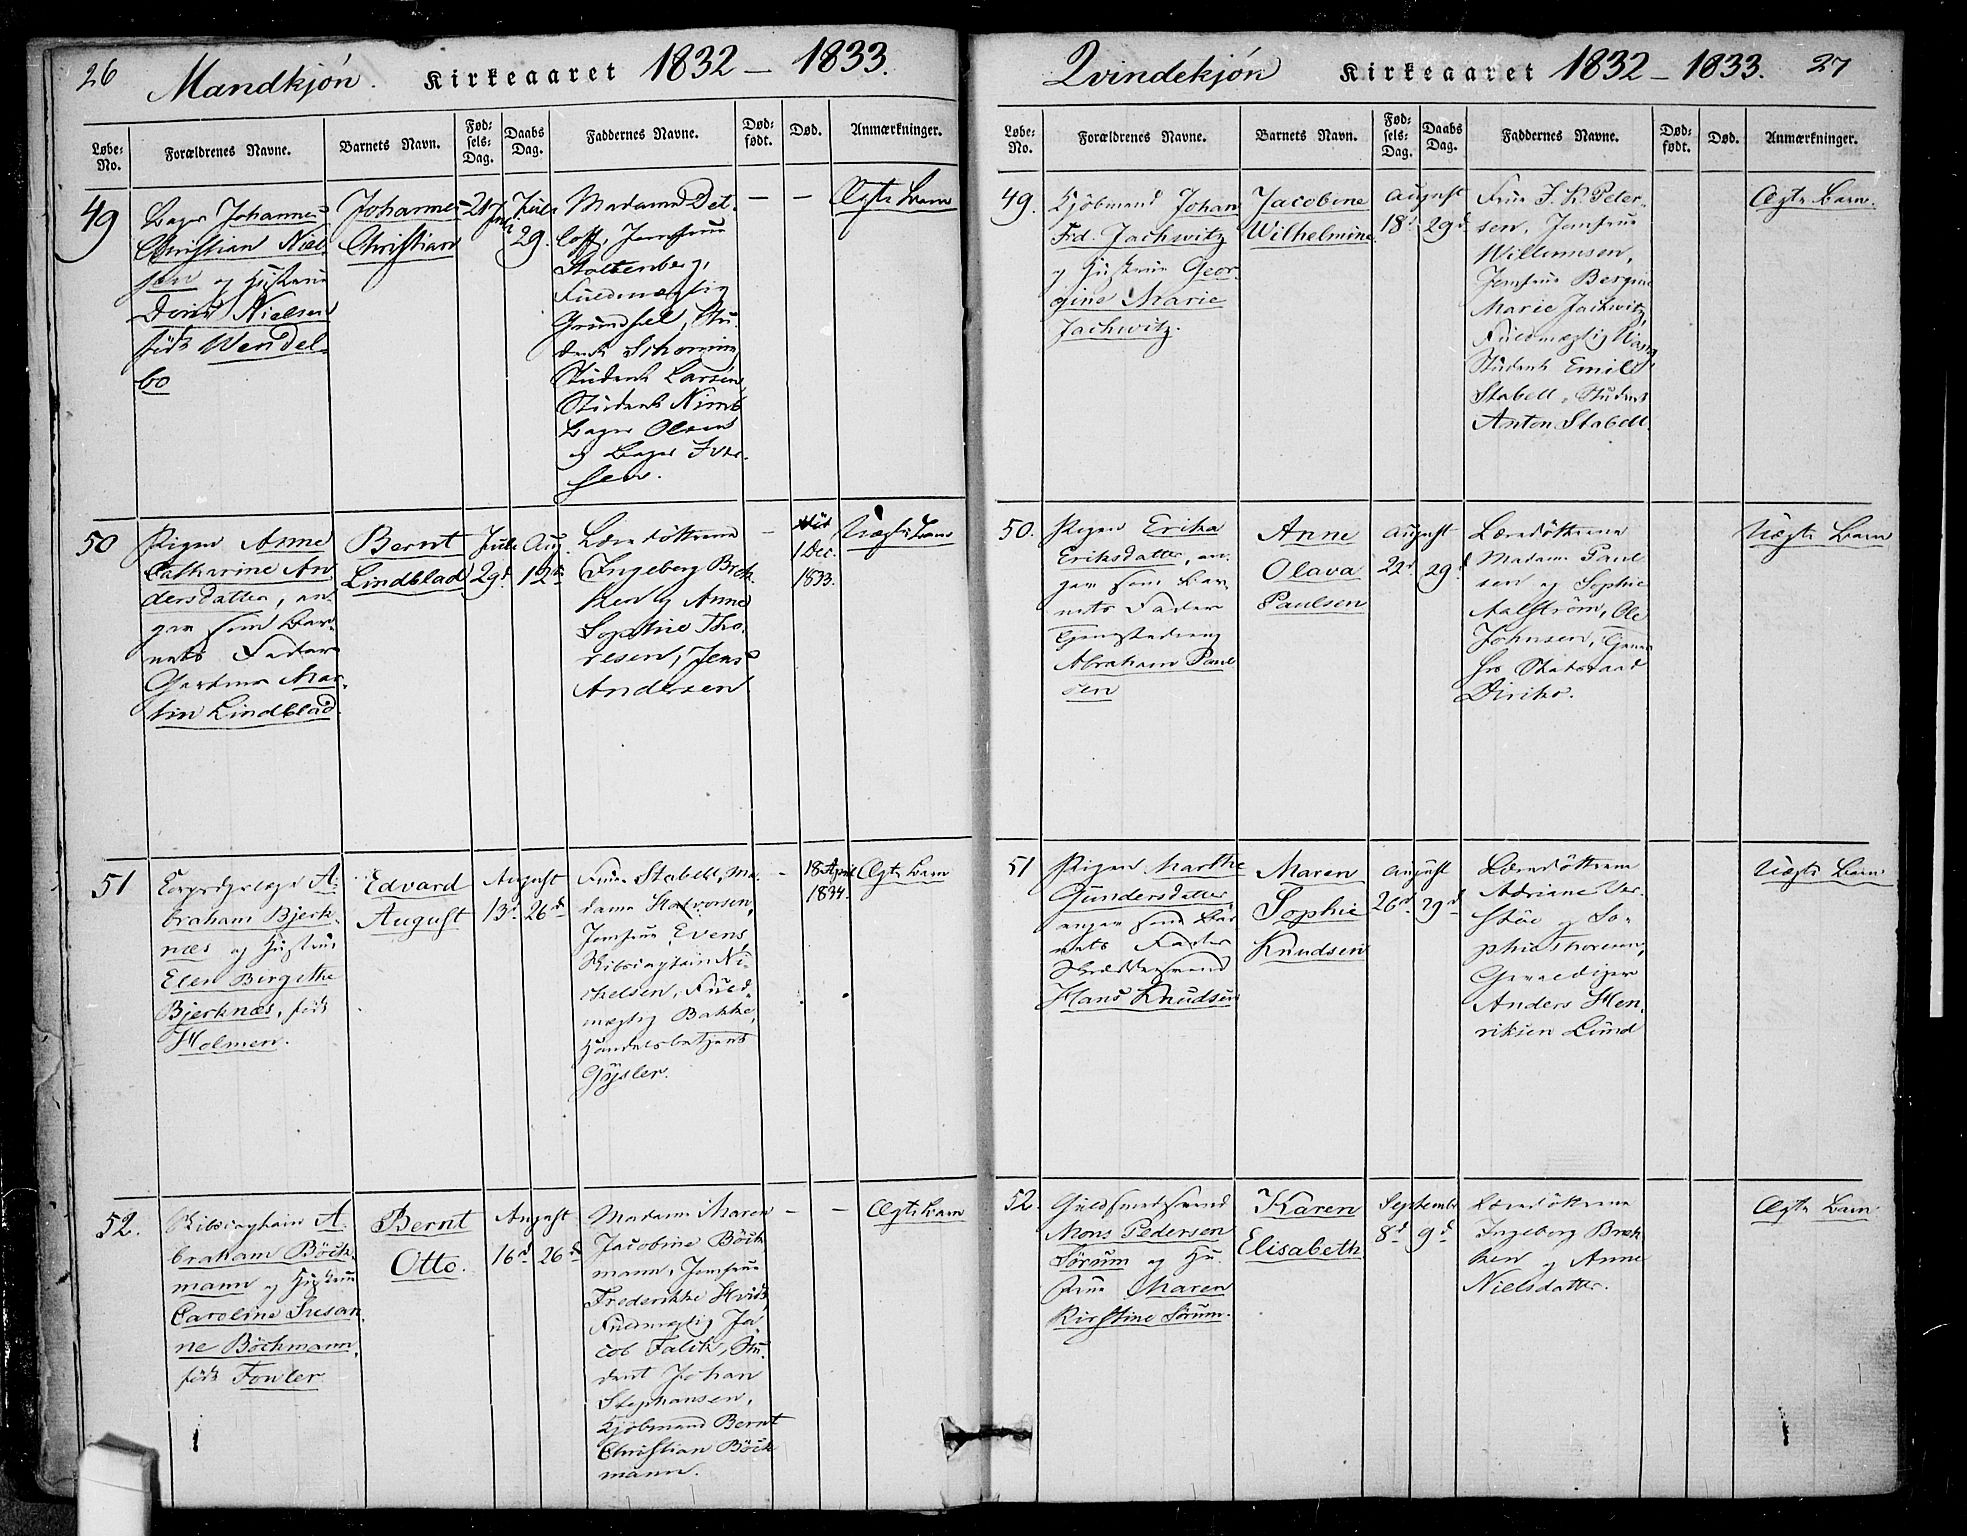 26 Mandkjøn. Kirkeaaret 1832 – 1833.
Løbe-No. Forældrenes Navne. Barnets Navn. Fødselsdag. Daabs Dag. Faddernes Navne. Dødfødt. Død. Anmærkninger.
49
Bager Johannes
Christian Niel-
sen og Hustrue
Nielsen
født Wendel-
bo
Johannes
Christian
21
Juli
29
Madame Det-
loff, Jomfrue
Stoltenberg,
Fuldmægtig
Stu-
dent Schorning
Student Larsen
Student
Bager Olsen
og Bager Iver-
sen.
— —
Ægte Barn
50
Pigen Anne
Catharine An
dersdatter, an-
gav som Bar-
nets Fader
Gartner Mar-
tin Lindblad.
Bernt
Lindblad
Juli
29d
Aug.
12te
Ingeberg Brek-
ken og Anne
Sophie Tho-
resen, Jens
Andersen
—
1 Dec.
1833.
Uægte Barn
51
A-
braham Bjerk-
næs og Hustrue
Elen Birgethe
Bjerknæs, født
Holmen.
Edvard
August
August
13d 26d
Frue Stabell, Ma-
dame Halvorsen,
Jomfrue Evens
Skibscaptain Ni-
chelsen, Fuld-
mægtig Bakke,
Handelsbetjent
Gysler.
—
18 April
1834.
Ægte Barn
52.
Skibscaptain A-
braham Böck-
mann og Hustrue
Caroline Susan-
ne Böckmann,
født Fowler
Bernt
Otto.
August
16d 26d
Madame Maren
Jacobine Böck
mann, Jomfrue
Frederikke Hvidt,
Fuldmægtig Ja-
cob Falck, Stu-
dent Johan
Stephansen,
Kjöbmand Bernt
Christian Böck
mann.
— —
Ægte Barn
Qvindekjøn Kirkeaaret 1832 – 1833. 27
Løbe-No. Forældrenes Navne. Barnets Navn. Fødselsdag. Daabs Dag. Faddernes Navne. Dødfødt. Død. Anmærkninger.
49.
Kjöbmand Johan
Frd. Jachwitz
og Hustrue Geor-
gine Marie
Jachwitz.
Jacobine
Wilhelmine
August
18d 29d
Frue J. K. Peter-
sen, Jomfrue
Willumsen,
Jomfrue Bergine
Marie Jachwitz,
Fuldmægtig
Student Emil
Stabell, Student
Anton Stabell.
Ægte Barn.
50.
Pigen Erika
Eriksdatter, an-
gav som Bar-
nets Fader
Abraham Paul
sen
Anne
Olava
Paulsen
August
22d 29d
Madam Paul
sen og Sophie
Aalström, Ole
Johnsen,
hos Statsraad
Diriks.
Uægte Barn
51
Pigen Marthe
Gundersdatter
angav som Bar
nets Fader
Skræddersvend
Hans Knudsen
Maren
Sophie
Knudsen
August
26d 29d
Adriane
og So-
phie Thoresen,
Gevaldiger
Anders Hen-
riksen Lund
Uægte Barn
52.
Guldsmedsvend
Mons Pedersen
Sörum og Hu-
strue Maren
Kirstine Sörum.
Karen
Elisabeth
September
8d 9d
Ingeborg Brek
ken og Anne
Nielsdatter.
Ægte Barn